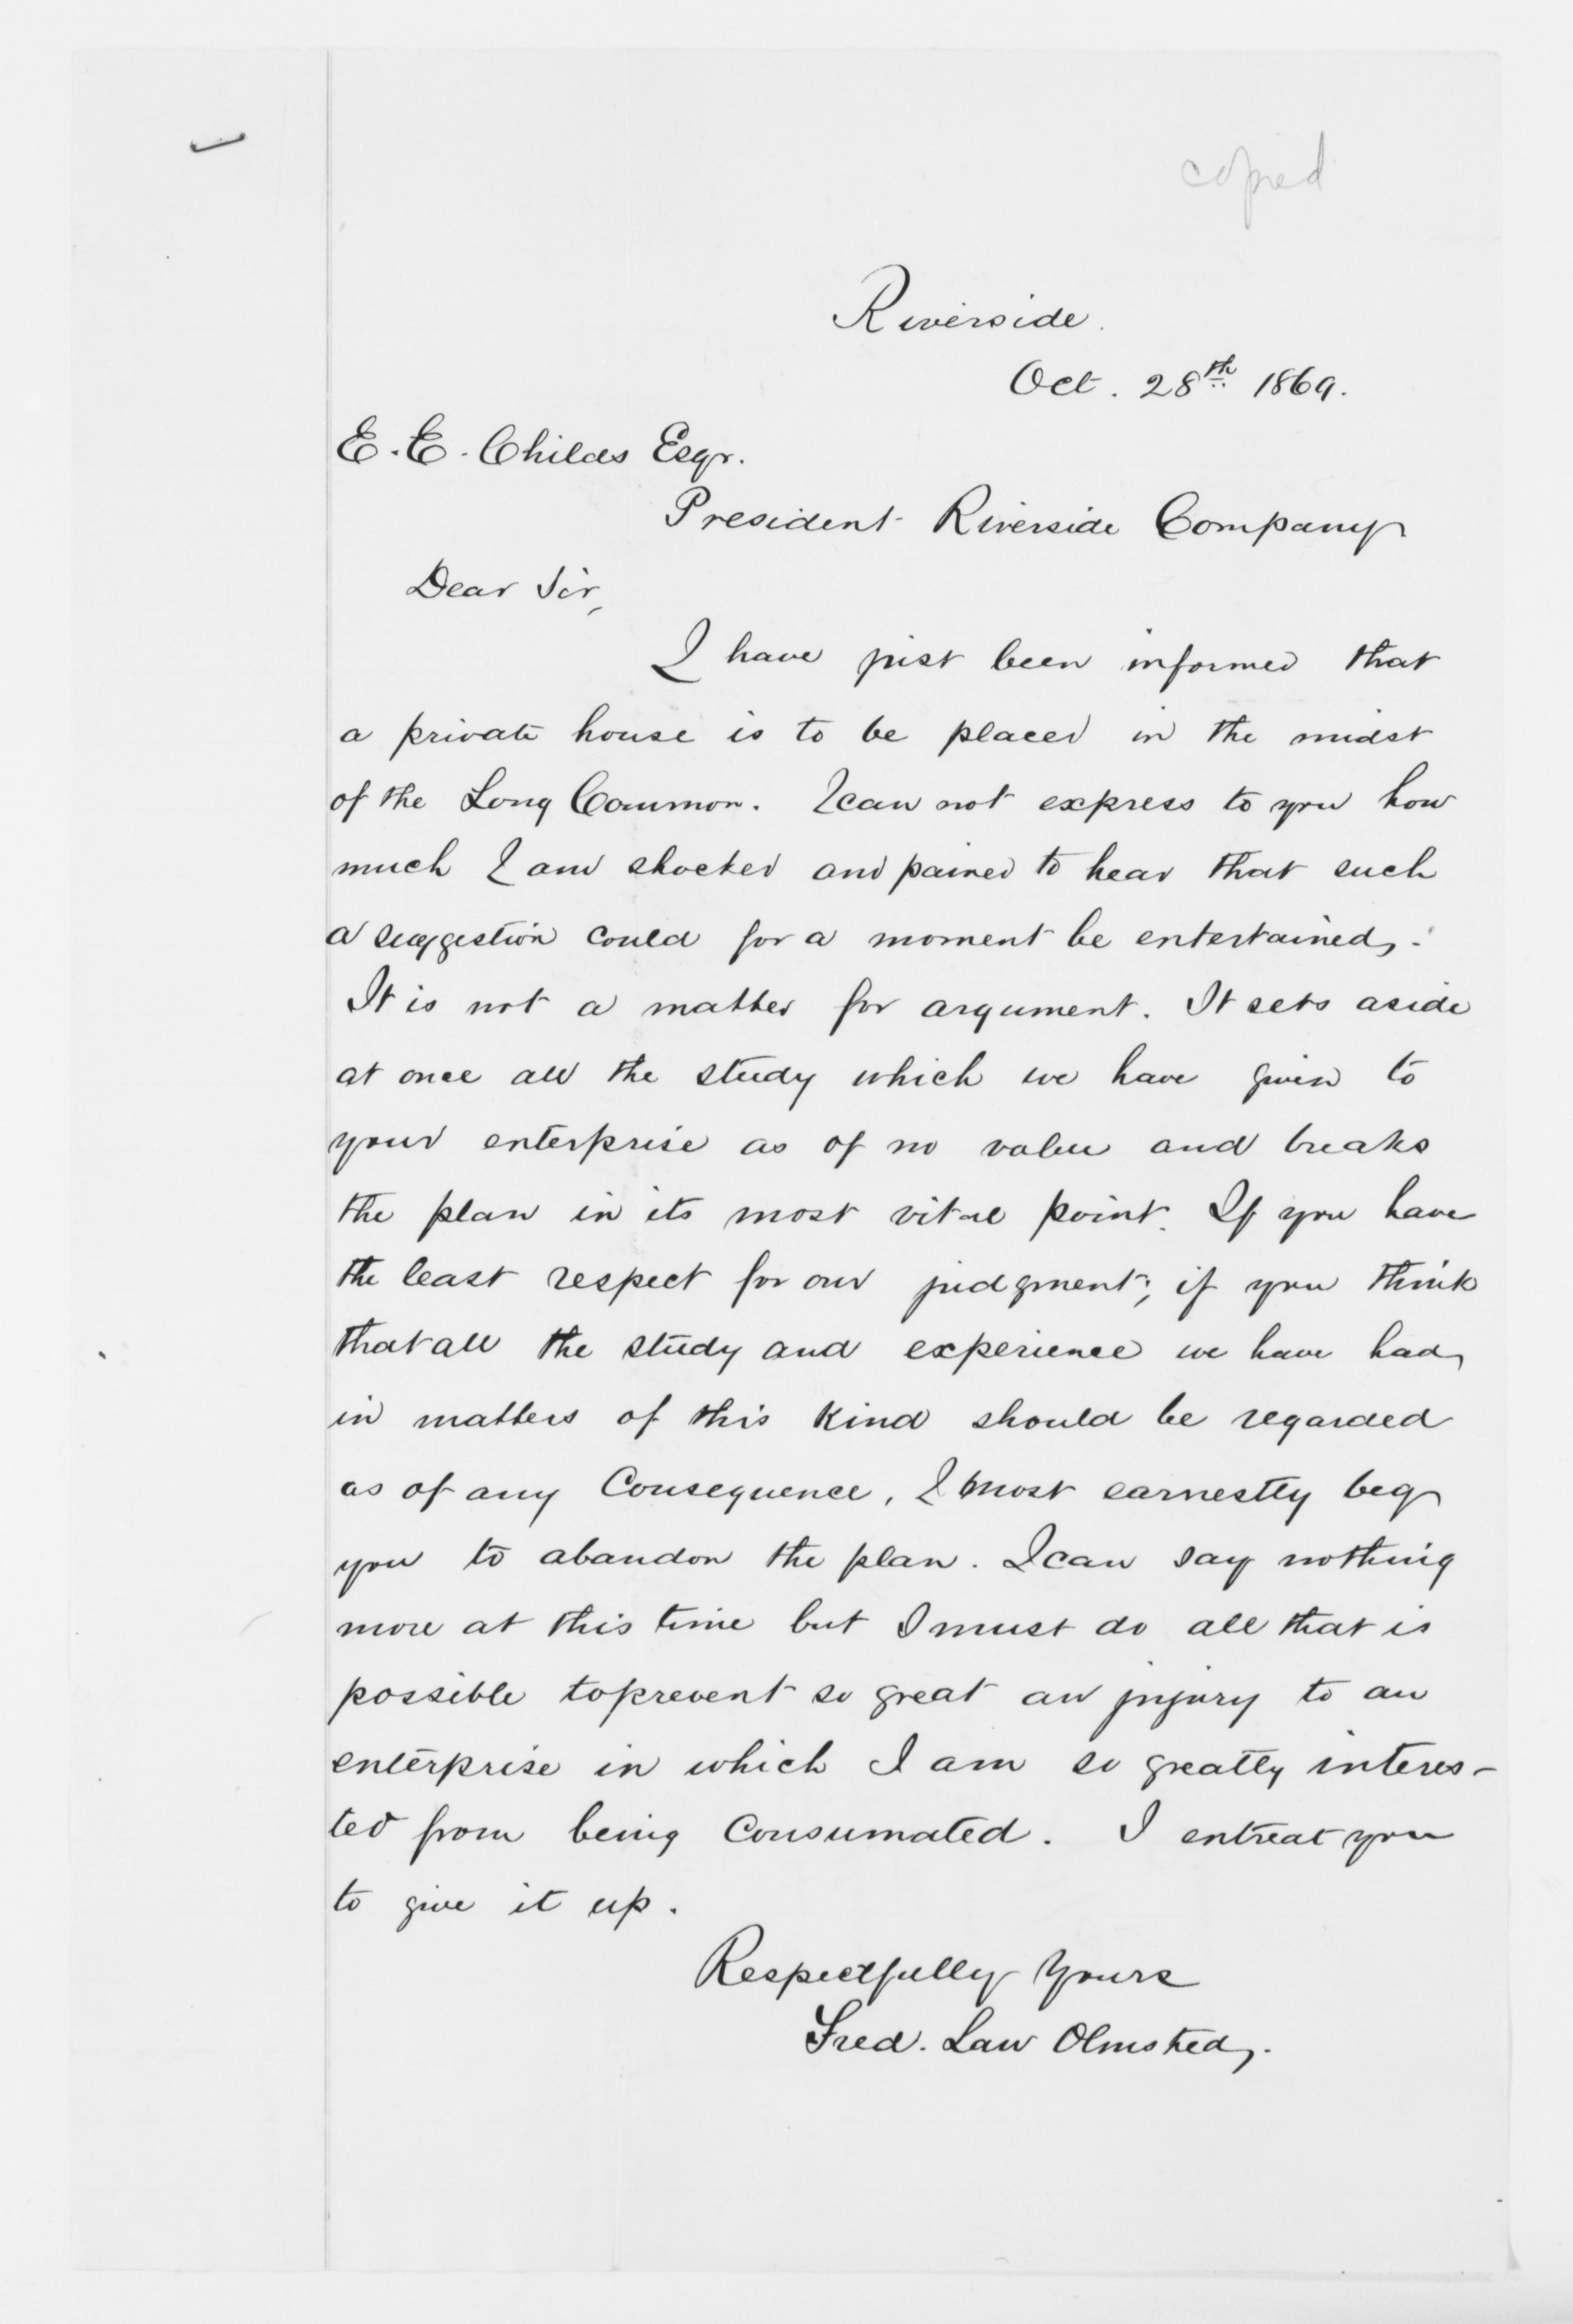 copied
Riverside.
Oct. 28th 1869.
E. E. Childs Esqr.
President Riverside Company
Dear Sir,
I have just been informed that
a private house is to be placed in the midst
of the Long Common. I can not express to you how
much I am shocked and pained to hear that such
a suggestion could for a moment be entertained.
It is not a matter for argument. It sets aside
at once all the study which we have given to
your enterprise as of no value and breaks
the plan in its most vital point. If you have
the least respect for our judgment; if you think
that all the study and experience we have had,
in matters of this kind should be regarded
as of any Consequence, I most earnestly beg
you to abandon the plan. I can say nothing
more at this time but I must do all that is
possible to prevent so great an injury to an
enterprise in which I am so greatly interes-
ted from being Consumated. I entreat you
to give it up.
Respectfully Yours
Fred. Law Olmsted.